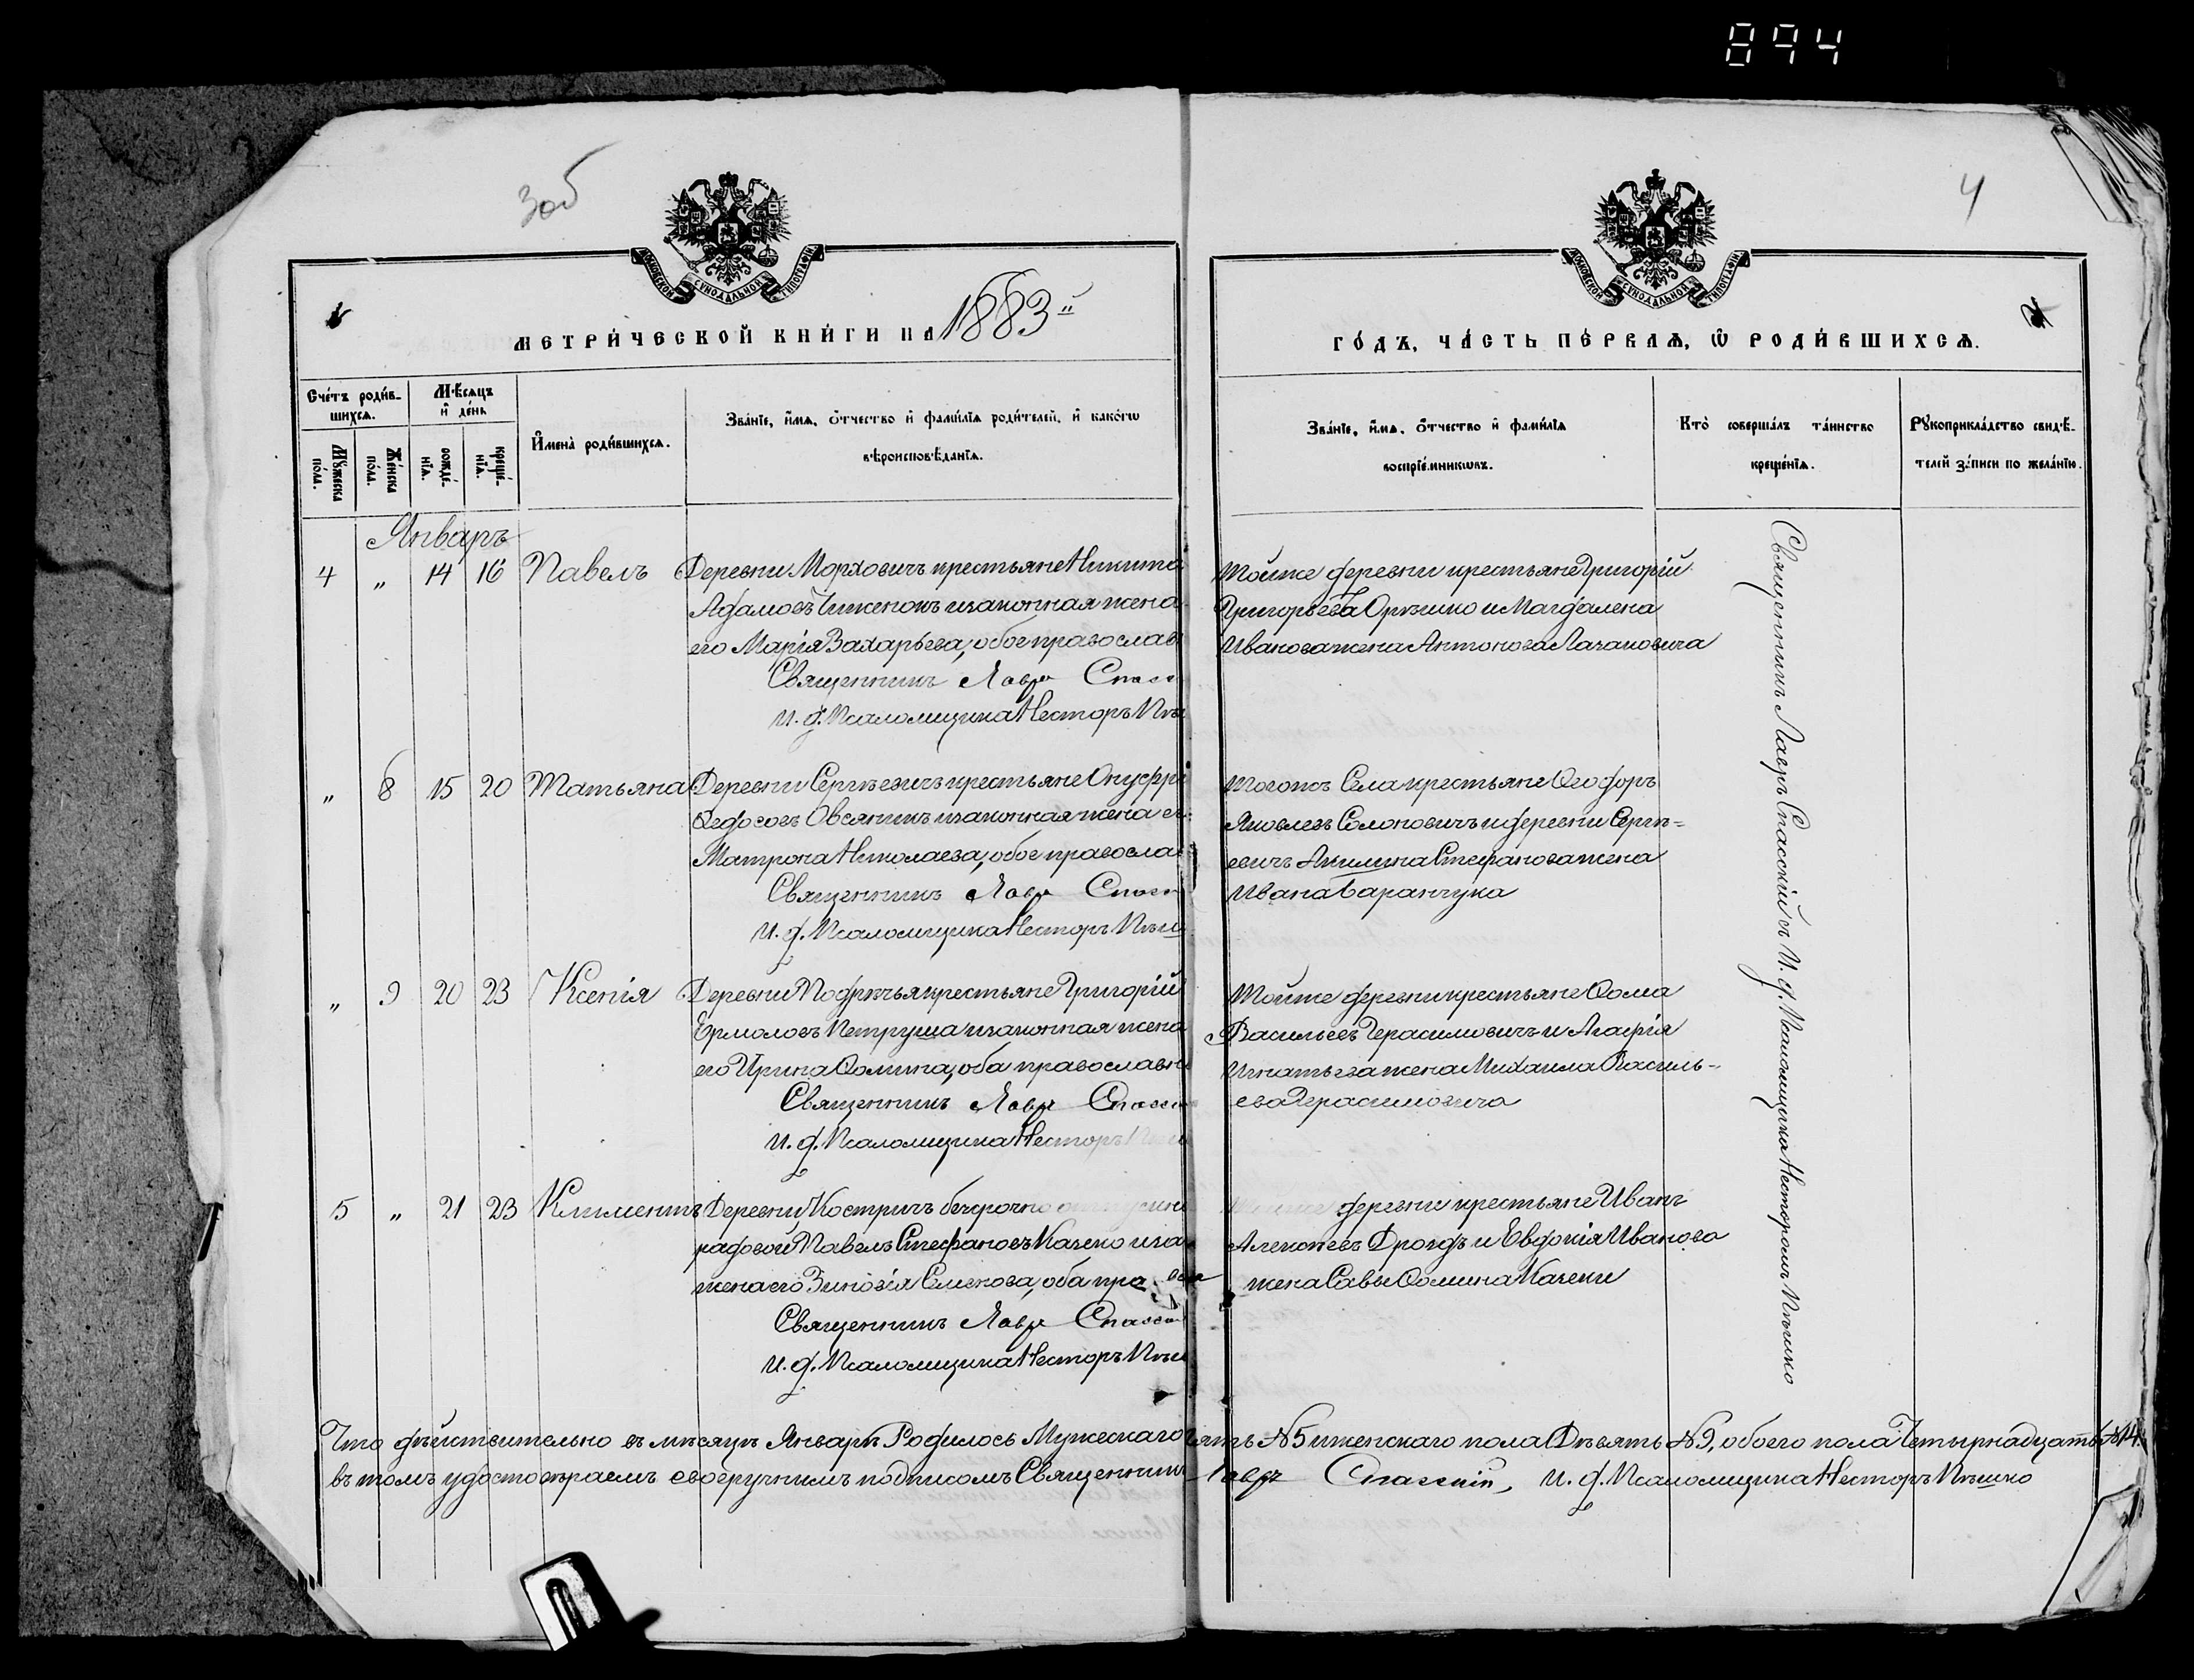 894
3об
4
МОСКОВСКОЙ СѴНОДАЛЬНОЙ ТИПОГРАФІИ
МОСКОВСКОЙ СѴНОДАЛЬНОЙ ТИПОГРАФІИ
МЕТРИ́ЧЕСКОЙ КНИ́ГИ НА 1883й
ГО́ДЪ, ЧА́СТЬ ПЕ́РВАѦ, Ѡ РОДИ́ВШИХСѦ.
Сче́тъ роди́в-
шихсѧ.
Мѣ́сѧцъ
и҆ де́нь
Мꙋ́жеска
по́ла.
Же́нска
по́ла.
рожде́-
нїѧ.
креще́-
нїѧ.
И҆мена̀ роди́вшихсѧ.
Зва́нїе, и҆́мѧ, ѻ҆́тчество и҆ фами́лїѧ роди́телей, и҆ како́гѡ
вѣроисповѣ́данїѧ.
Зва́нїе, и҆́мѧ, ѻ҆́тчество и҆ фами́лїѧ
воспрїе́мникѡвъ.
Кто̀ соверша́лъ та́инство
креще́нїѧ.
Рꙋкоприкла́дство свидѣ́-
телей за́писи по жела́нїю.
Январь
4 " 14 16 Павелъ Деревни Морховичъ крестьяне Никита
Адамовъ Чиженокъ и законная жена
его Марія Захарьева, обое православ
Священникъ Лавръ Спасс
И. д. Псаломщика Несторъ Пѣш
Тойже деревни крестьяне Григорій
Григорьевъ Орѣшко и Магдалена
Иванова жена Антонова Лагановича
" 8 15 20 Татьяна Деревни Сергѣевичъ крестьяне Онуфрій
Ѳедосовъ Овсяникъ и законная жена ег
Матрона Николаева, обое православ
Священникъ Лавръ Спасс
И. д. Псаломщика Несторъ Пѣш
Тогожъ Села крестьяне Ѳеодоръ
Яковлевъ Солоновичъ и деревни Сергѣ=
евичъ Акилина Стефанова жена
Ивана Баранчука
" 9 20 23 Ксенія Деревни Подрѣчья крестьяне Григорій
Ермоловъ Петруша и законная жена
его Ирина Ѳомина, оба православн
Священникъ Лавръ Спасс
И. д. Псаломщика Несторъ
Тойже деревни крестьяне Ѳома
Васильевъ Герасимовичъ и Агафія
Игнатьева жена Михаила Василь=
ева Герасимовича
5 " 21 23 Климентъ Деревни Костричъ безсрочно
рядовой Павелъ Стефановъ Качено и за
жена его Зиновія Семенова, оба пра
Священникъ Лавръ Спасс
И. д. Псаломщика Несторъ Пѣш
деревни крестьяне Иванъ
Алексѣевъ Дроздъ и Евдокія Иванова
жена Савы Ѳомина Качени
Священникъ Лавръ Спасскій съ И. д. Псаломщика Несторомъ Пѣшко
Что дѣйствительно въ мѣсяцѣ Январѣ Родилось Мужескаго пять №5 и женскаго пола Девять №9, обоего пола Четырнадцать №14
въ томъ удостовѣряемъ своеручнымъ подписомъ Священникъ Лавръ Спасскій, И. д. Псаломщика Несторъ Пѣшко